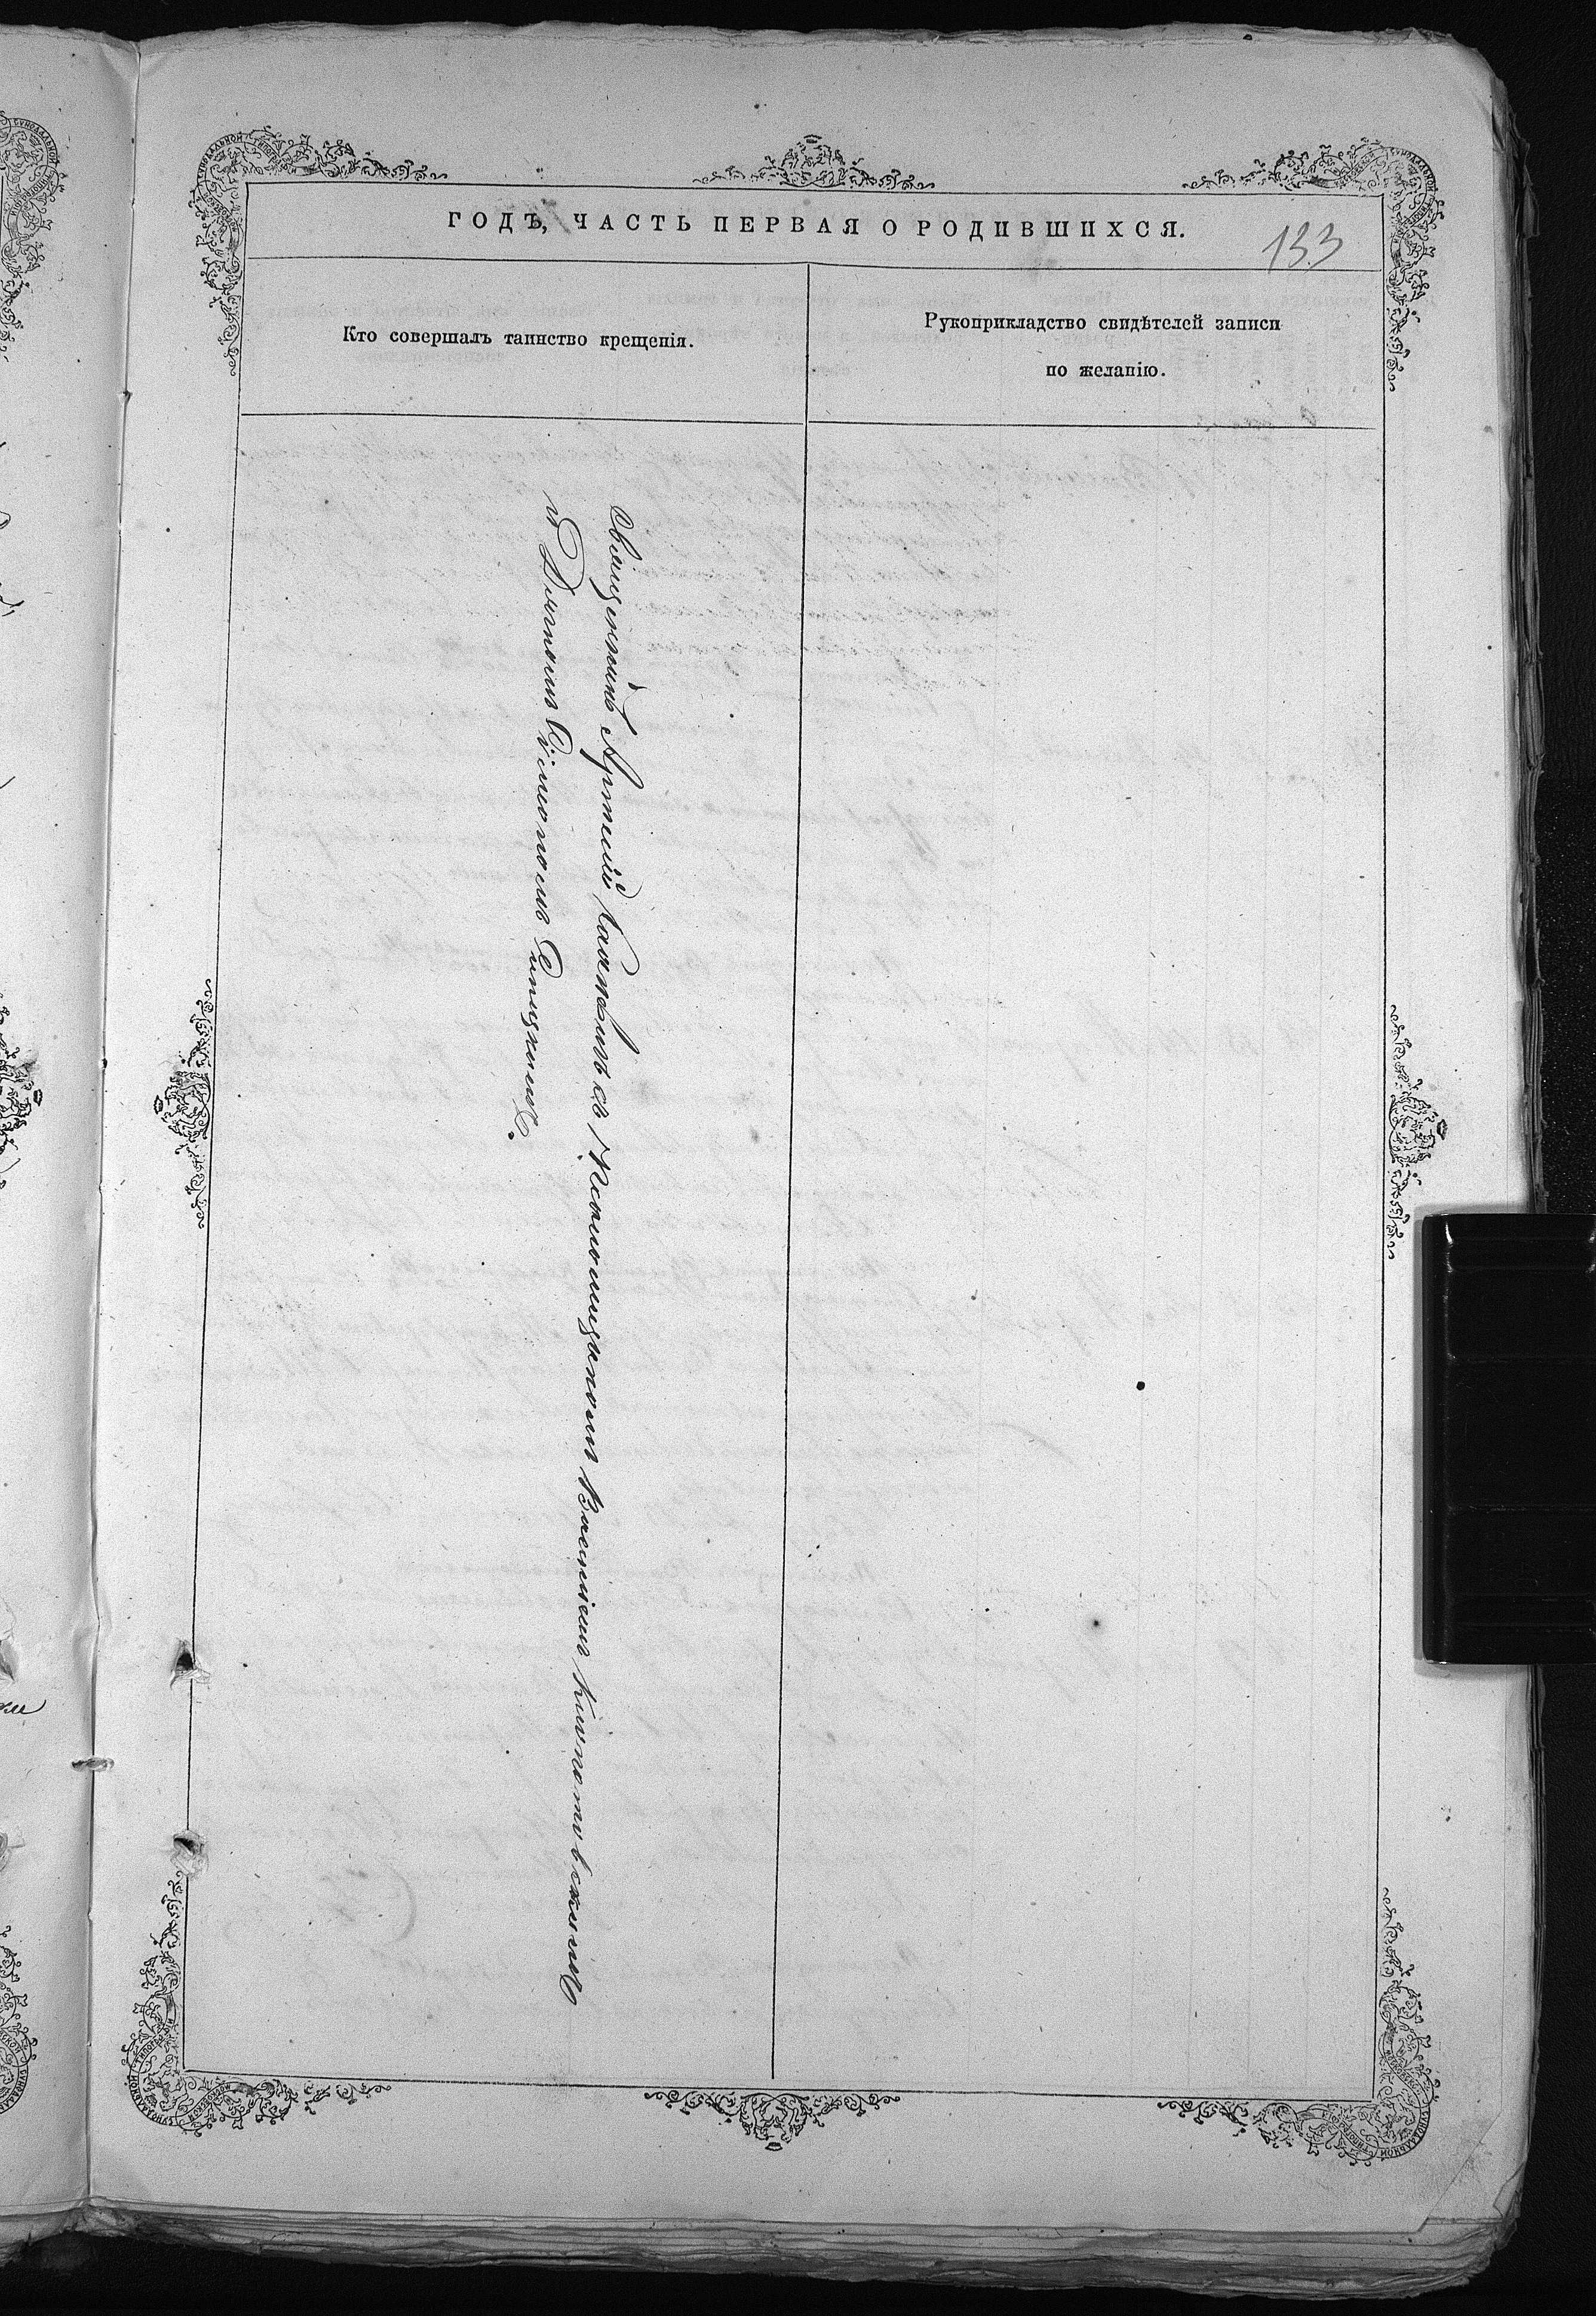 ГОДЪ, ЧАСТЬ ПЕРВАЯ О РОДИВШИХСЯ.
133
Кто совершалъ таинство крещенія.
Рукоприкладство свидѣтелей записи
по желанію.
Священникъ Артемій съ Псаломщикомъ Василіемъ
и Дьячкомъ Сѵмеономъ Синицкимъ.